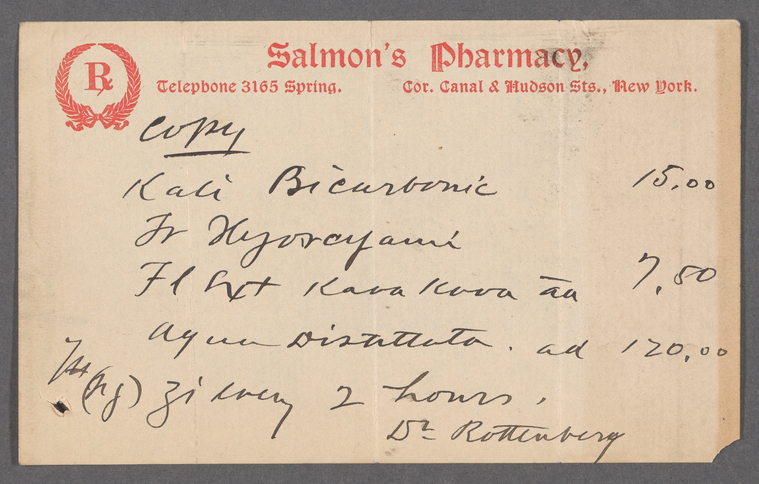 Rx
Salmon's Pharmacy,
Telephone 3165 Spring. Cor. Canal & Hudson Sts., New York.
Copy
Kali Bicarbonic 15.00
Tr Hyoscyami
Fl Ext Kava Kava āa 7.50
Aqua Distillata. ad 120.00
ʒi every 2 hours.
Dr Rottenberg